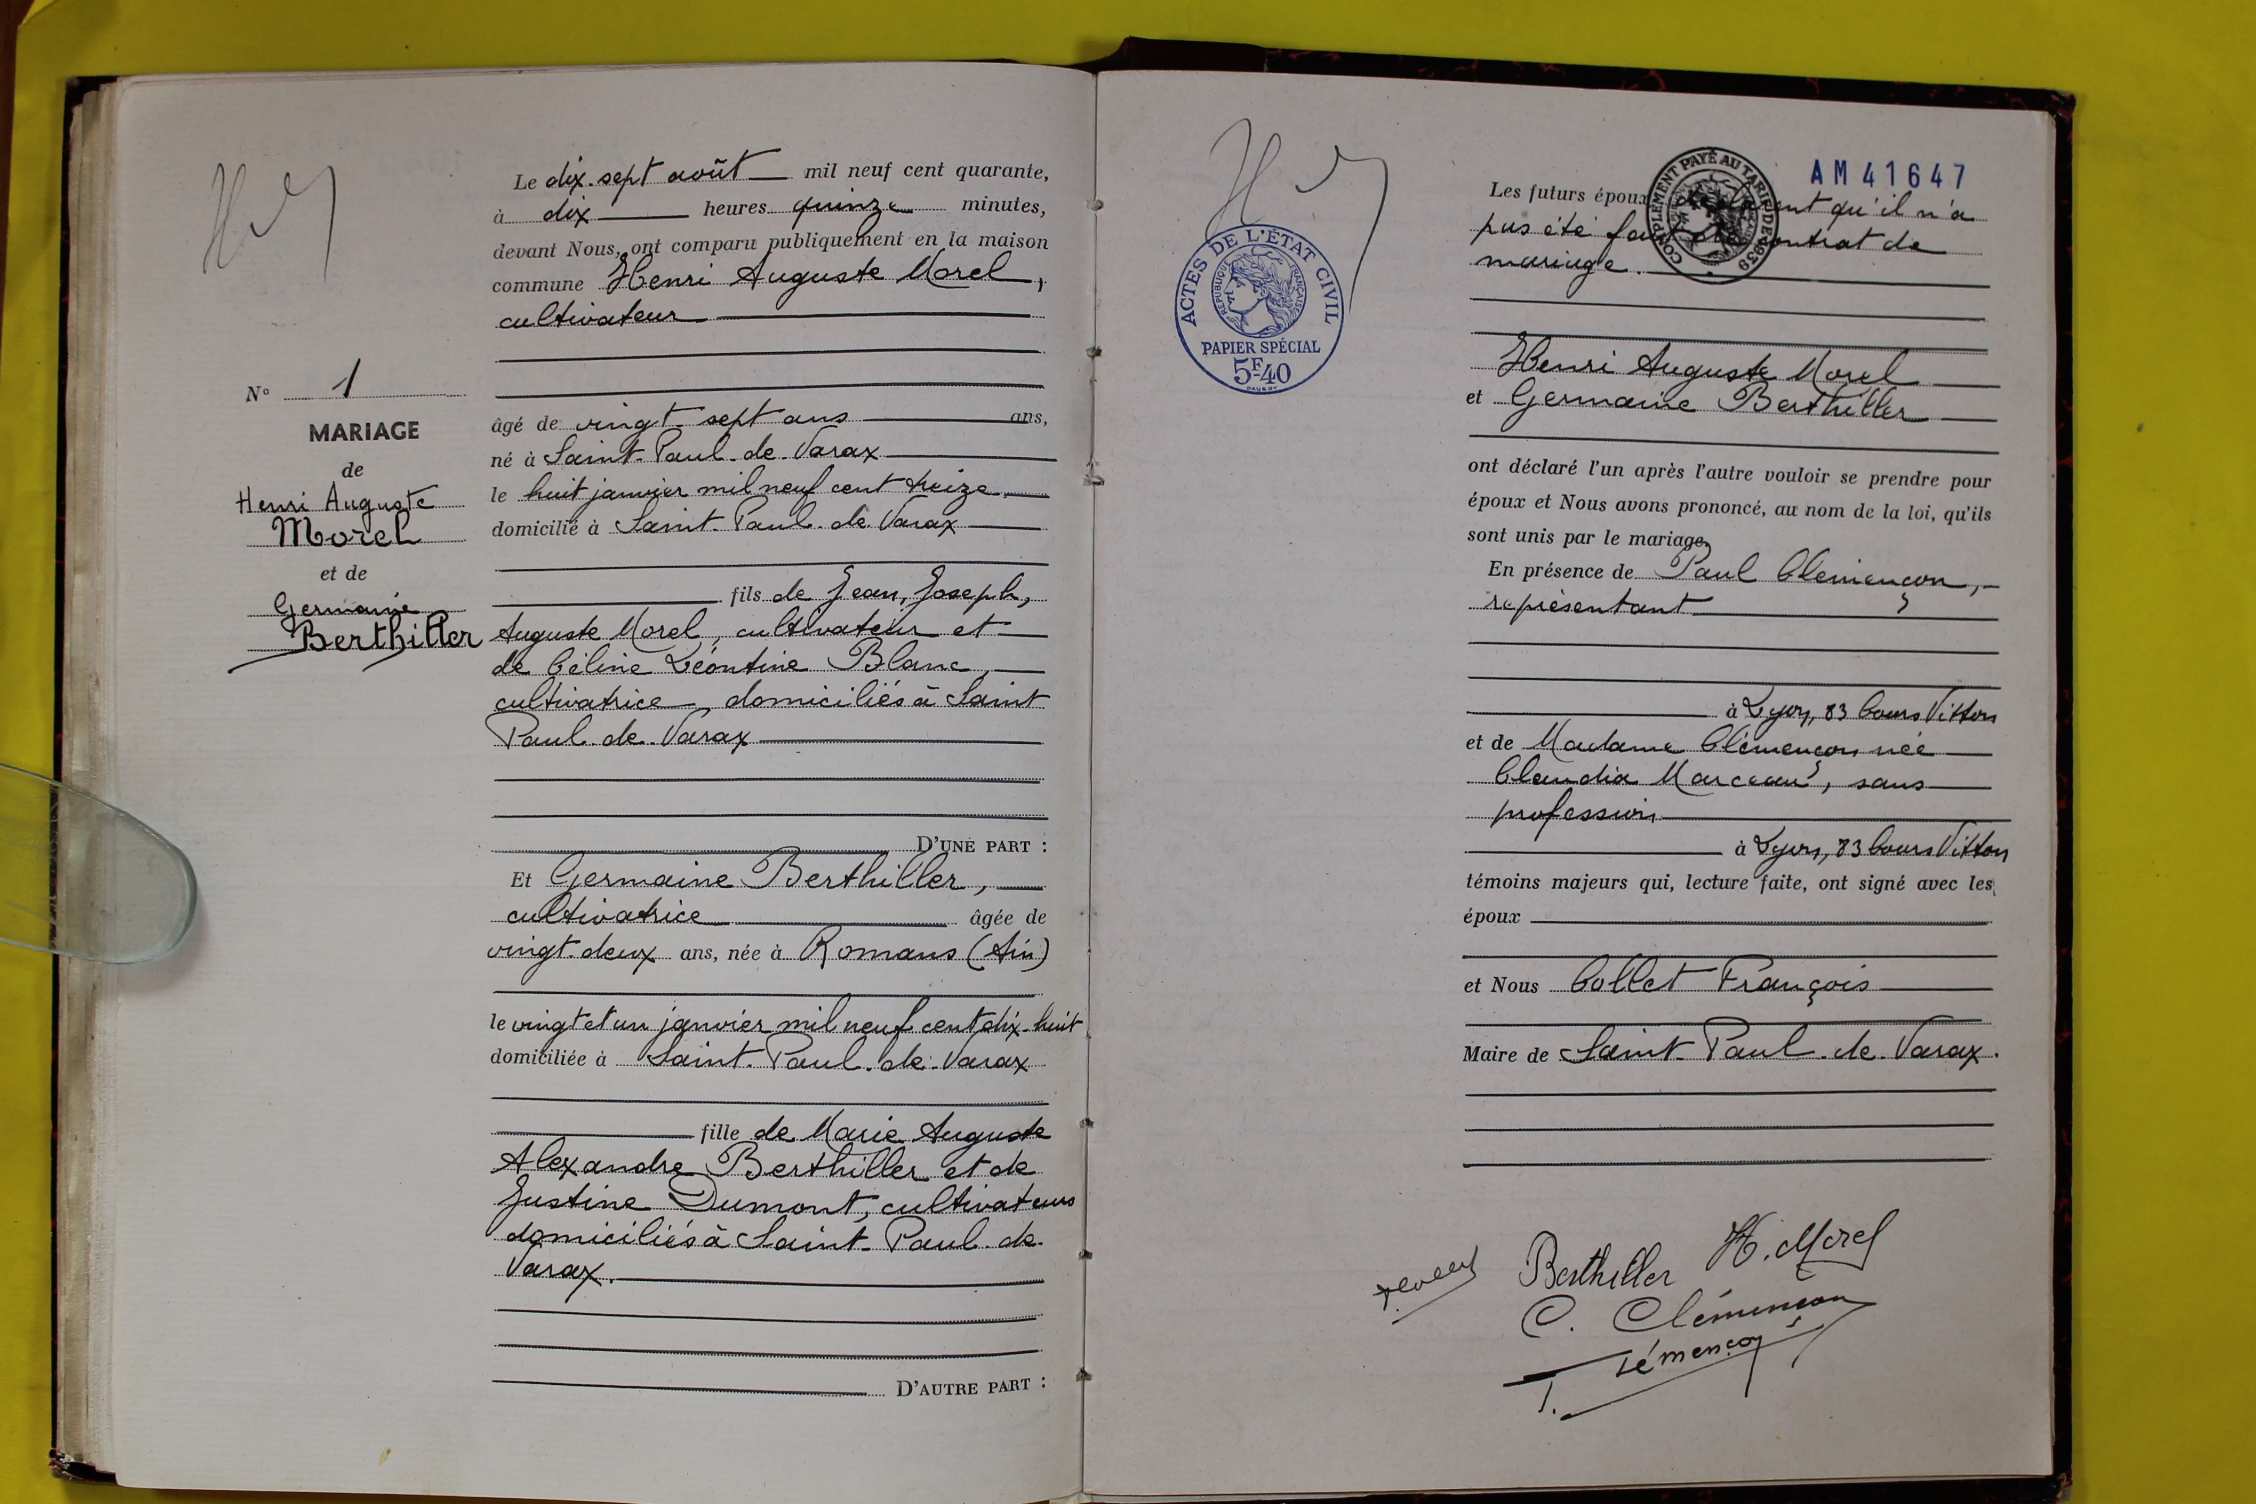 N° 1
MARIAGE
de
Henri Auguste
Morel
et de
Germaine
Berthiller
Le dix-sept août mil neuf cent quarante,
à dix heures quinze minutes,
devant Nous, ont comparu publiquement en la maison
commune Henri Auguste Morel,
cultivateur
âgé de vingt-sept ans ans,
né à Saint-Paul-de-Varax
le huit janvier mil neuf cent treize
domicilié à Saint-Paul-de-Varax
fils de Jean, Joseph,
Auguste Morel, cultivateur et
de Céline Léontine Blanc,
cultivatrice, domiciliés à Saint
Paul-de-Varax
D'UNE PART :
Et Germaine Berthiller,
cultivatrice âgée de
vingt-deux ans, née à Romans (Ain)
le vingt et un janvier mil neuf cent dix-huit
domiciliée à Saint-Paul-de-Varax
fille de Marie Auguste
Alexandre Berthiller et de
Justine Dumont, cultivateurs
domiciliés à Saint-Paul-de-
Varax.
D'AUTRE PART :
ACTES DE L'ÉTAT CIVIL
RÉPUBLIQUE FRANÇAISE
PAPIER SPÉCIAL
5F40
COMPLÉMENT PAYÉ AU TARIF DE 1939
AM 41647
Les futurs époux qu'il n'a
pas été contrat de
mariage.
Henri Auguste Morel
et Germaine Berthiller
ont déclaré l'un après l'autre vouloir se prendre pour
époux et Nous avons prononcé, au nom de la loi, qu'ils
sont unis par le mariage.
En présence de Paul Clémençon,
représentant
à Lyon, 83 Cours Vitton
et de Madame Clémençon née
Claudia Marceau, sans
profession
à Lyon, 83 Cours Vitton
témoins majeurs qui, lecture faite, ont signé avec les
époux
et Nous Collet François
Maire de Saint-Paul-de-Varax.
Berthiller H. Morel
C. Clémençon